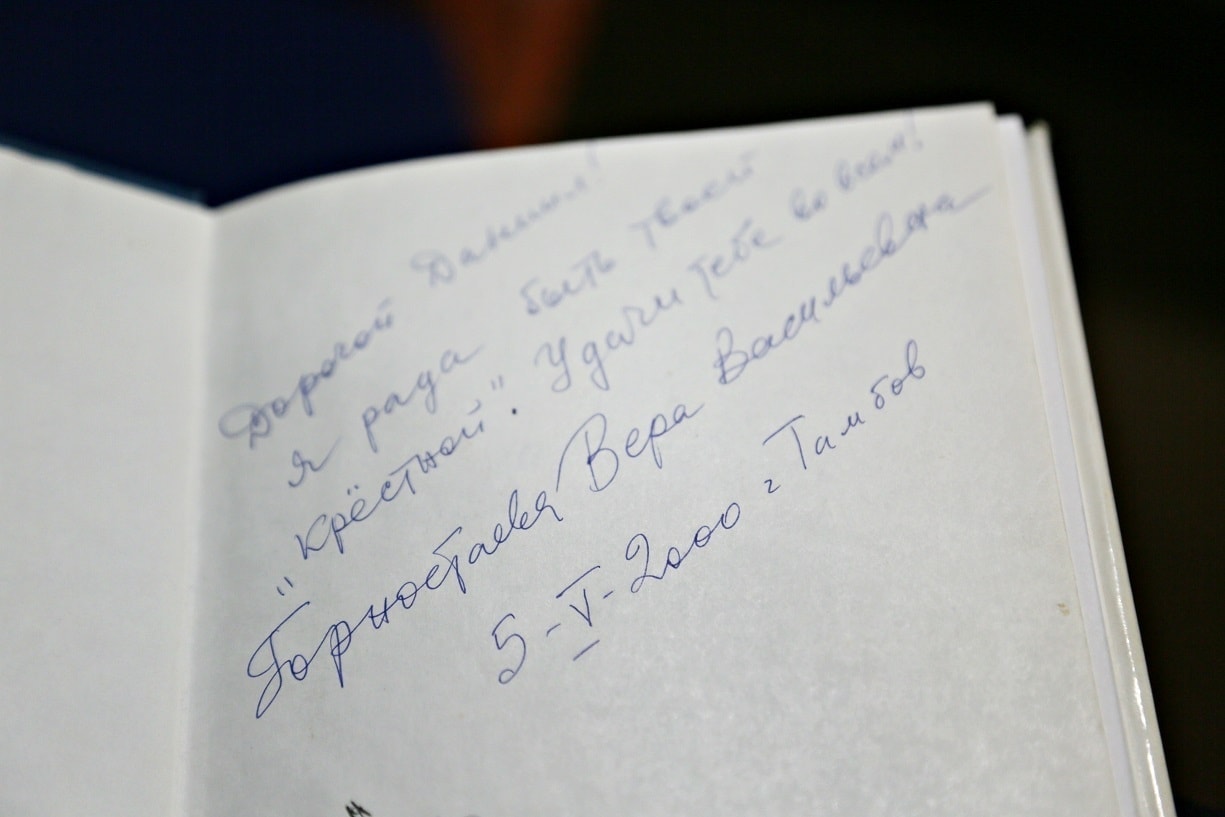 Дорогой Даниил!
Я рада быть твоей
"крёстной". Удачи тебе во всём!
Горностаева Вера Васильевна
5-V-2000 г Тамбов